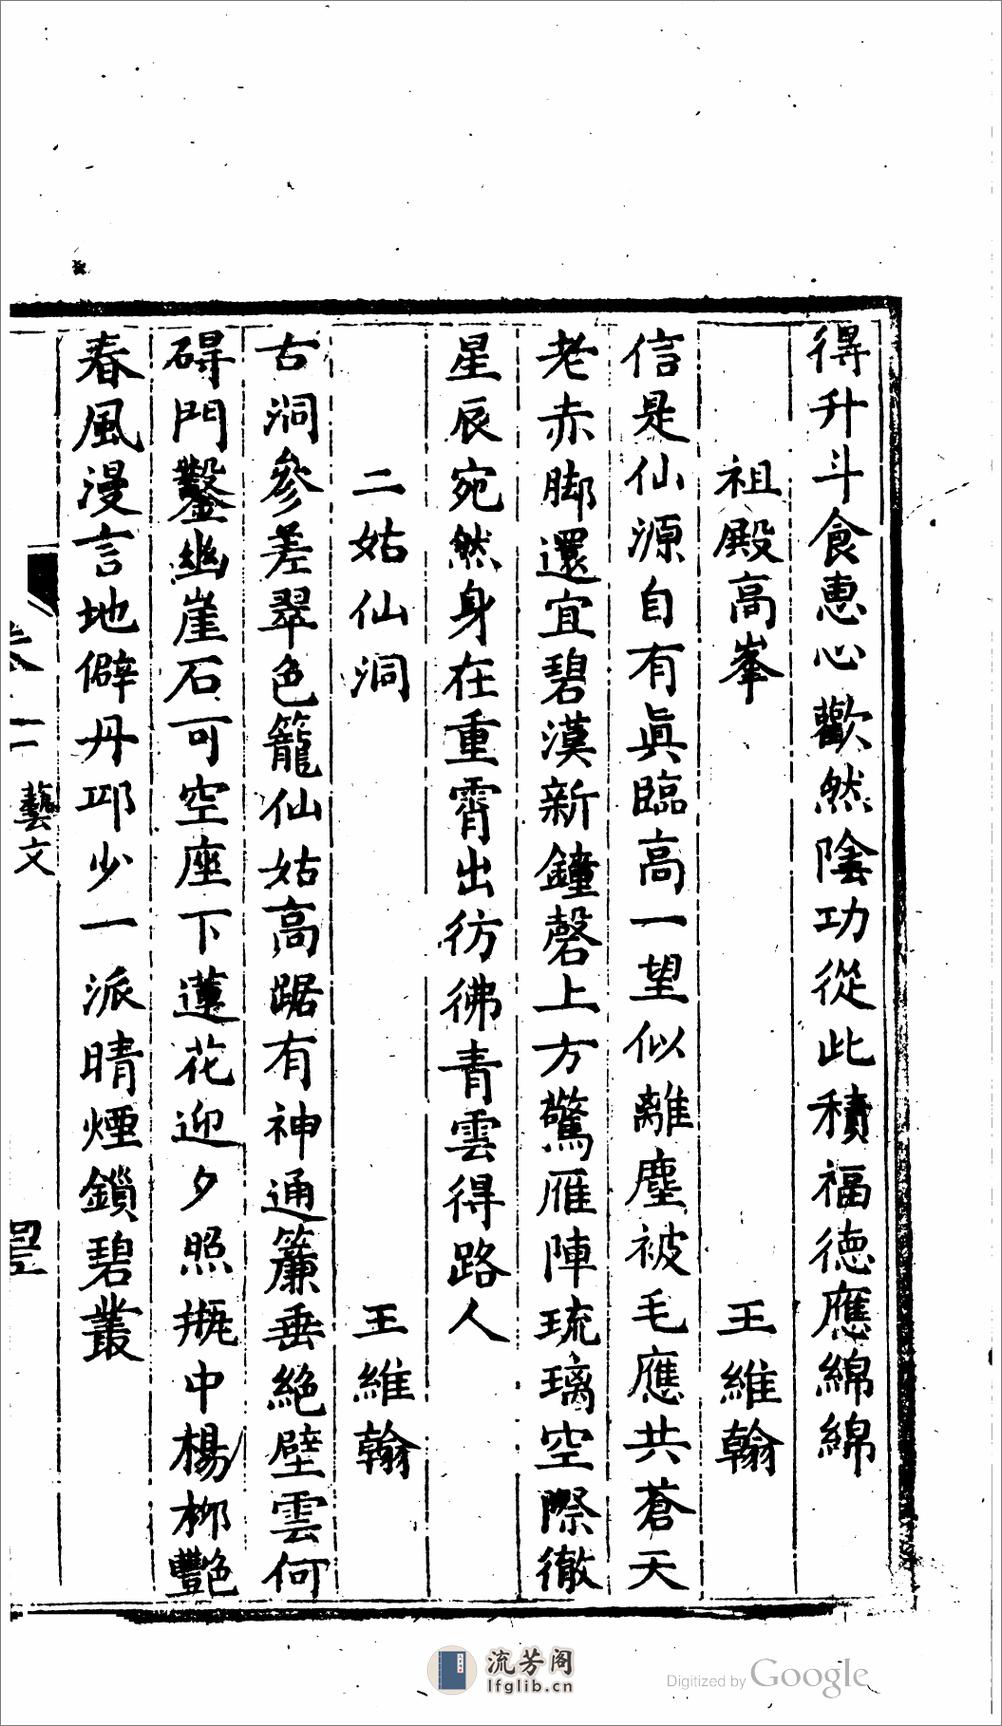 得升斗食恵心歡然陰功從此積福德應綿綿
祖殿高峯 王維翰
信是仙源自有眞臨高一望似離塵被毛應共蒼天
老赤脚還宜碧漢新鐘磬上方驚雁陣琉璃空際徹
星辰宛然身在重霄出彷彿青雲得路人
二姑仙洞 王維翰
古洞參差翠色籠仙姑高踞有神通簾垂絶壁雲何
碍門鑿幽崖石可空座下蓮花迎夕照瓶中楊柳艷
春風漫言地僻丹邱少一派晴煙鎖碧叢
藝文
流芳阁
lfglib.cn
Digitized by Google